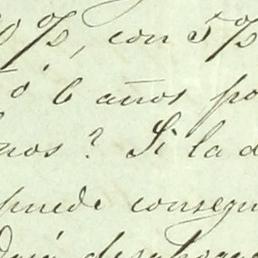 0 %, con 5 %
ó 6 años po
nos? Si la d
puede consegu